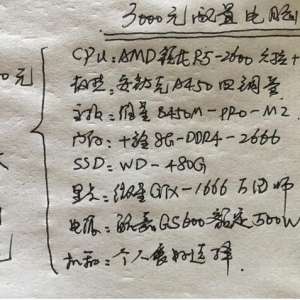 3000元配置电脑
0元
CPU:AMD锐龙R5-2600
散热:安钛克A450四铜管
主板:微星B450M-PRO-M2
内存:十铨8G-DDR4-2666
SSD:WD-480G
显卡:微星GTX-1666万图师
电源:GS600额定500W
机箱:个人喜好选择.